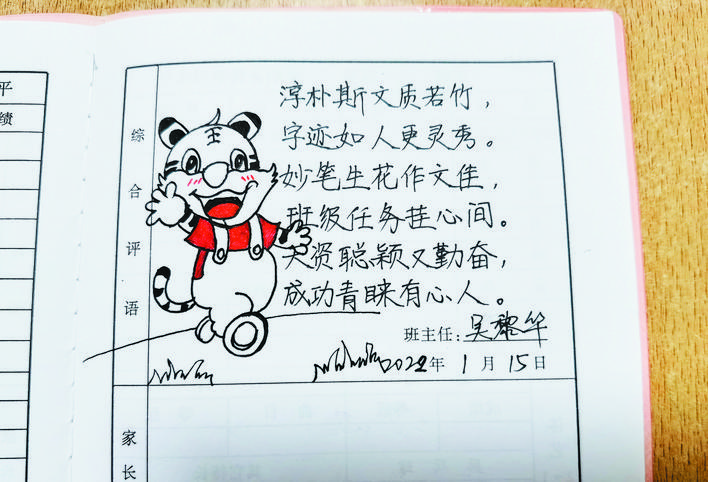 平
绩
综合评语
淳朴斯文质若竹，
字迹如人更灵秀。
妙笔生花作文佳，
班级任务挂心间。
天资聪颖又勤奋，
成功青睐有心人。
王
班主任：吴黎华
2022年1月15日
家长